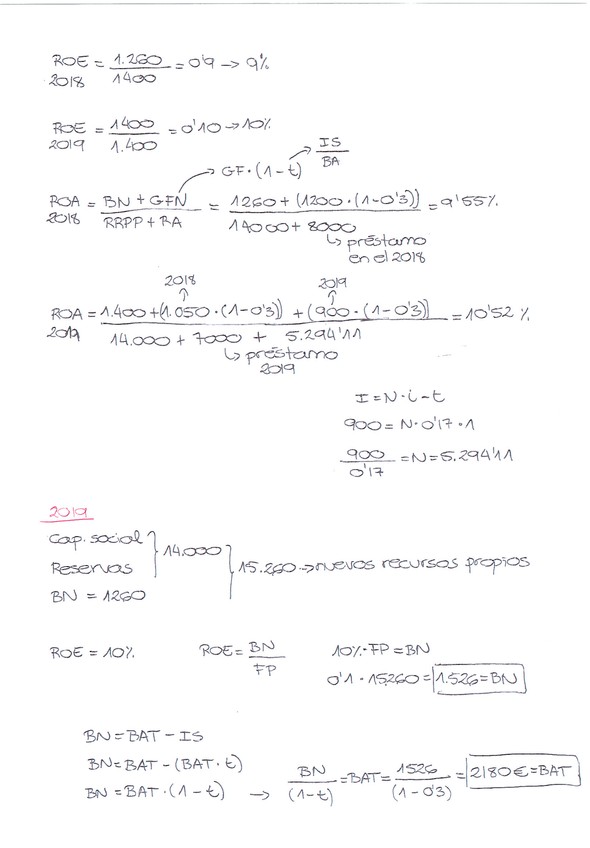 ROE 2018 = 1.260 / 1400 = 0'9 → 9%
ROE 2019 = 1400 / 1.400 = 0'10 → 10%
GF · (1 - t) → IS / BA
ROA 2018 = BN + GFN / RRPP + RA = 1260 + (1200 · (1 - 0'3)) / 14000 + 8000 = 9'55%
↳ préstamo
en el 2018
2018 2019
ROA 2019 = 1.400 + (1.050 · (1 - 0'3)) + (900 · (1 - 0'3)) / 14.000 + 7000 + 5.294'11 = 10'52 %
↳ préstamo
2019
I = N · i - t
900 = N · 0'17 · 1
900 / 0'17 = N = 5.294'11
2019
Cap. social
Reservas } 14.000
BN = 1260 } 15.260 → nuevos recursos propios
ROE = 10% ROE = BN / FP 10% · FP = BN
0'1 · 15260 = 1.526 = BN
BN = BAT - IS
BN = BAT - (BAT · t)
BN = BAT · (1 - t) → BN / (1 - t) = BAT = 1526 / (1 - 0'3) = 2180€ = BAT